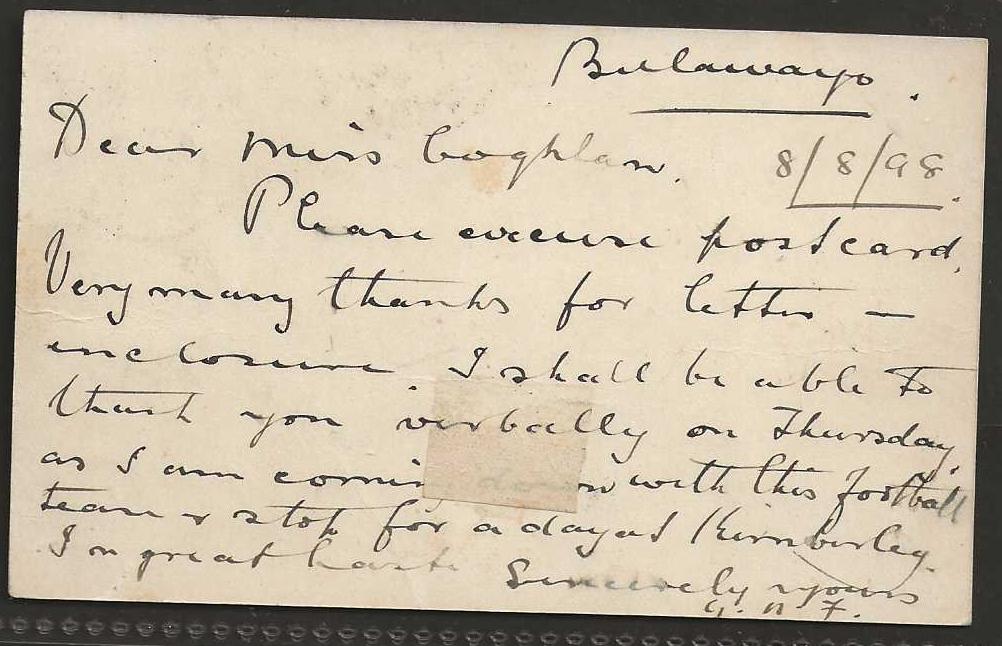 Bulawayo.
Dear Miss Coghlan. 8/8/98.
Please excuse postcard.
Very many thanks for letter —
enclosure I shall be able to
thank you verbally on Thursday,
as I am coming down with this football
team & stop for a day at Kimberley.
In great haste Sincerely yours